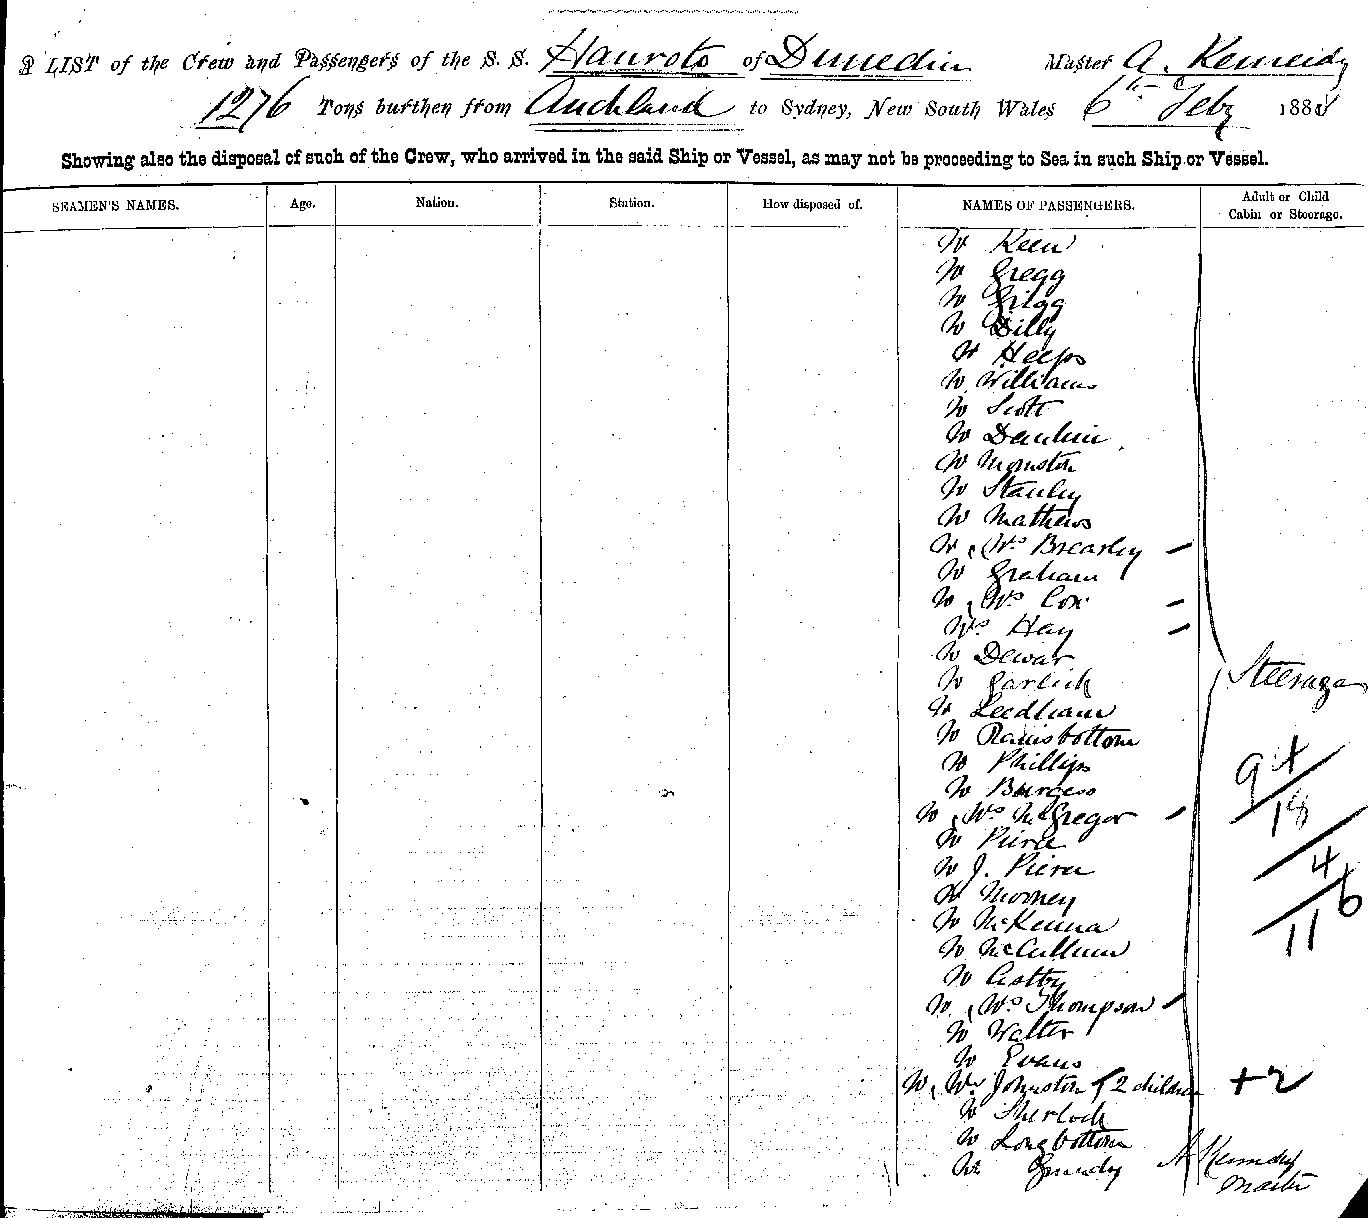 A LIST of the Crew and Passengers of the S. S. Hauroto of Dunedin Master A. Kennedy
1276 Tons burthen from Auckland to Sydney, New South Wales 6th Feby 188
Showing also the disposal of such of the Crew, who arrived in the said Ship or Vessel, as may not be proceeding to Sea in such Ship or Vessel.
SEAMEN'S NAMES. Age. Nation. Station. How disposed of. NAMES OF PASSENGERS. Adult or Child Cabin or Steerage.
Mr Keen
Mr Gregg
Mr Grigg
Mr Dilly
Mr Heeps
Mr Williams
Mr Scott
Mr
Mr
Mr Stanley
Mr Mathews
Mr & Mrs Brearley –
Mr Graham
Mr & Mrs Cox –
Mrs Hay –
Mr Dewar
Mr Garlick
Mr Leedham
Mr Ramsbottom
Steerage
Mr Phillips
Mr Burgess
Mr & Mrs McGregor –
Mr Pierce
Mr J. Pierce
18
Mr Mooney
Mr McKenna
Mr McCallum
11
Mr
Mr & Mrs Thompson –
Mr Walter
Mr Evans
Mr & Mrs Johnston & 2 children +2
Mr Sherlock
Mr Longbottom
Mr Grundy
A Kennedy
Master